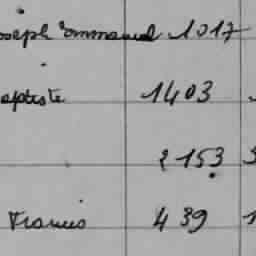 Joseph Emmanuel 1017
aptiste 1403
2153
Francis 439